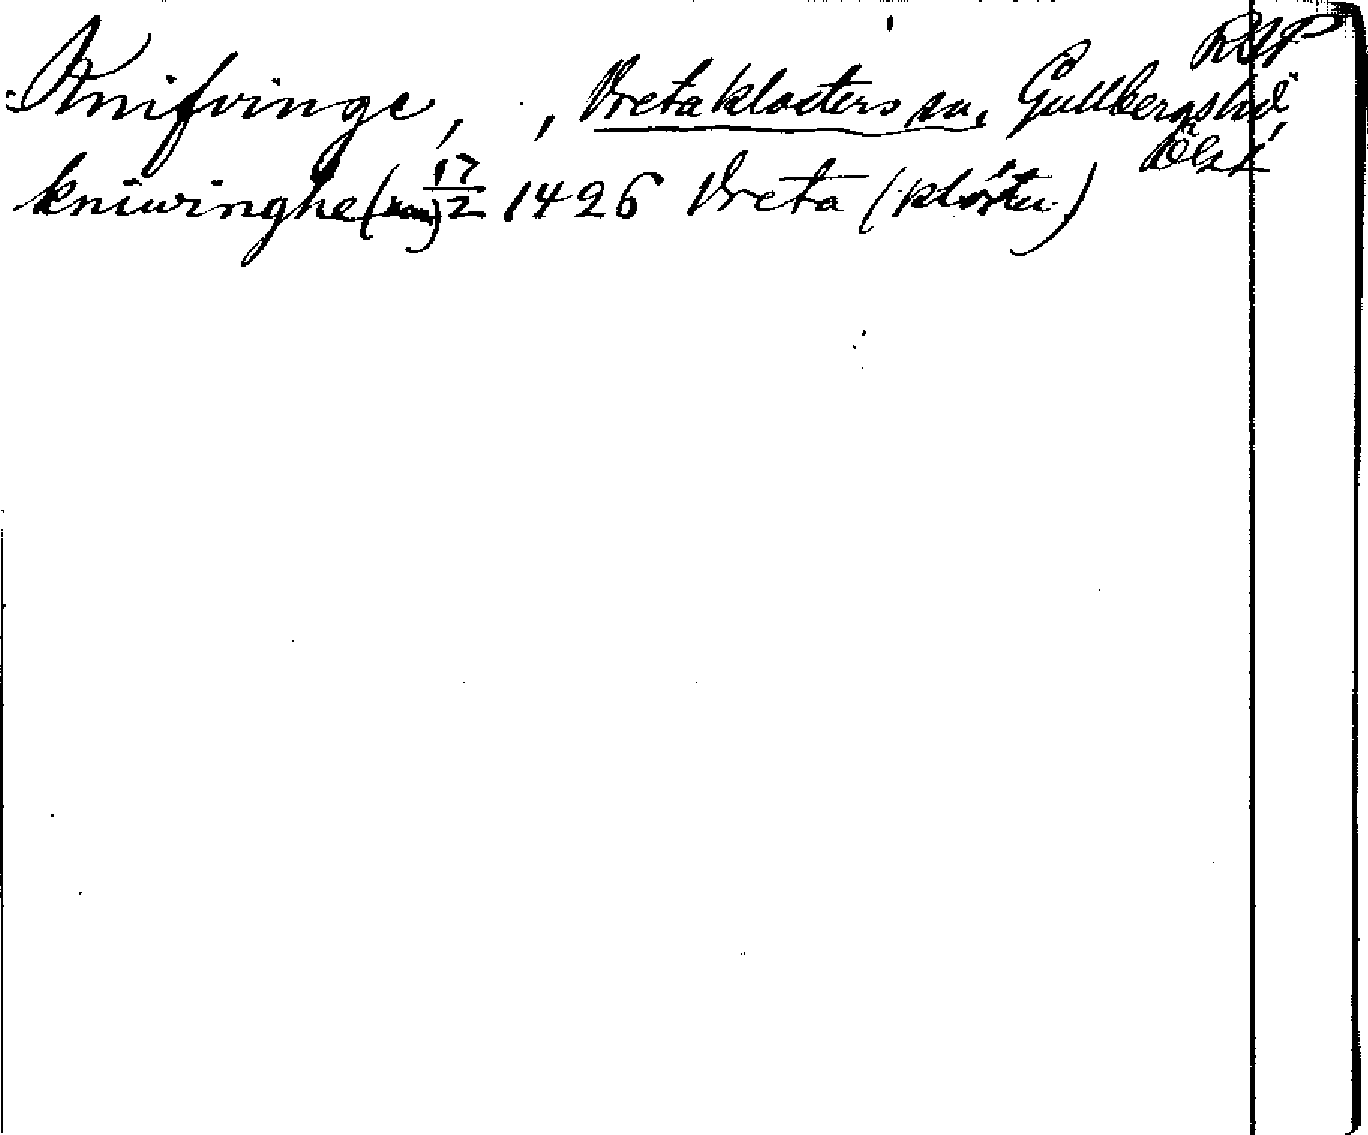 RAP
Knifvinge, , Vreta klosters sn, Gullbergs hd,
Ögl.
kniwinghe 17/2 1426 Vreta (kloster)